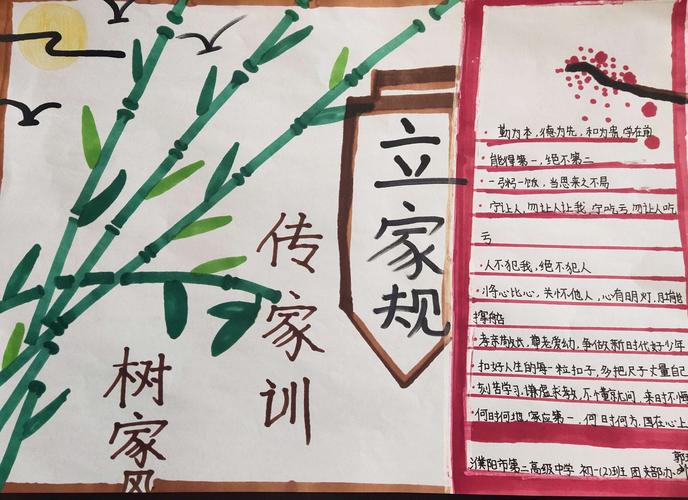 立家规
传家训
树家风
· 勤为本,德为先,和为贵,学在前
· 能得第一,绝不第二
· 一粥一饭,当思来之不易
· 宁让人,勿让人让我,宁吃亏,勿让人吃
亏
· 人不犯我,绝不犯人
· 将心比心,关怀他人,心有明灯,肚能
撑船
· 孝亲敬长,尊老爱幼,争做新时代好少年
· 扣好人生的每一粒扣子,多把尺子丈量自己
· 刻苦学习,谦虚求教,不懂就问,来日不悔
· 何时何地,家应第一,何时何方,国在心上
濮阳市第二高级中学 初一(2)班 团支部办